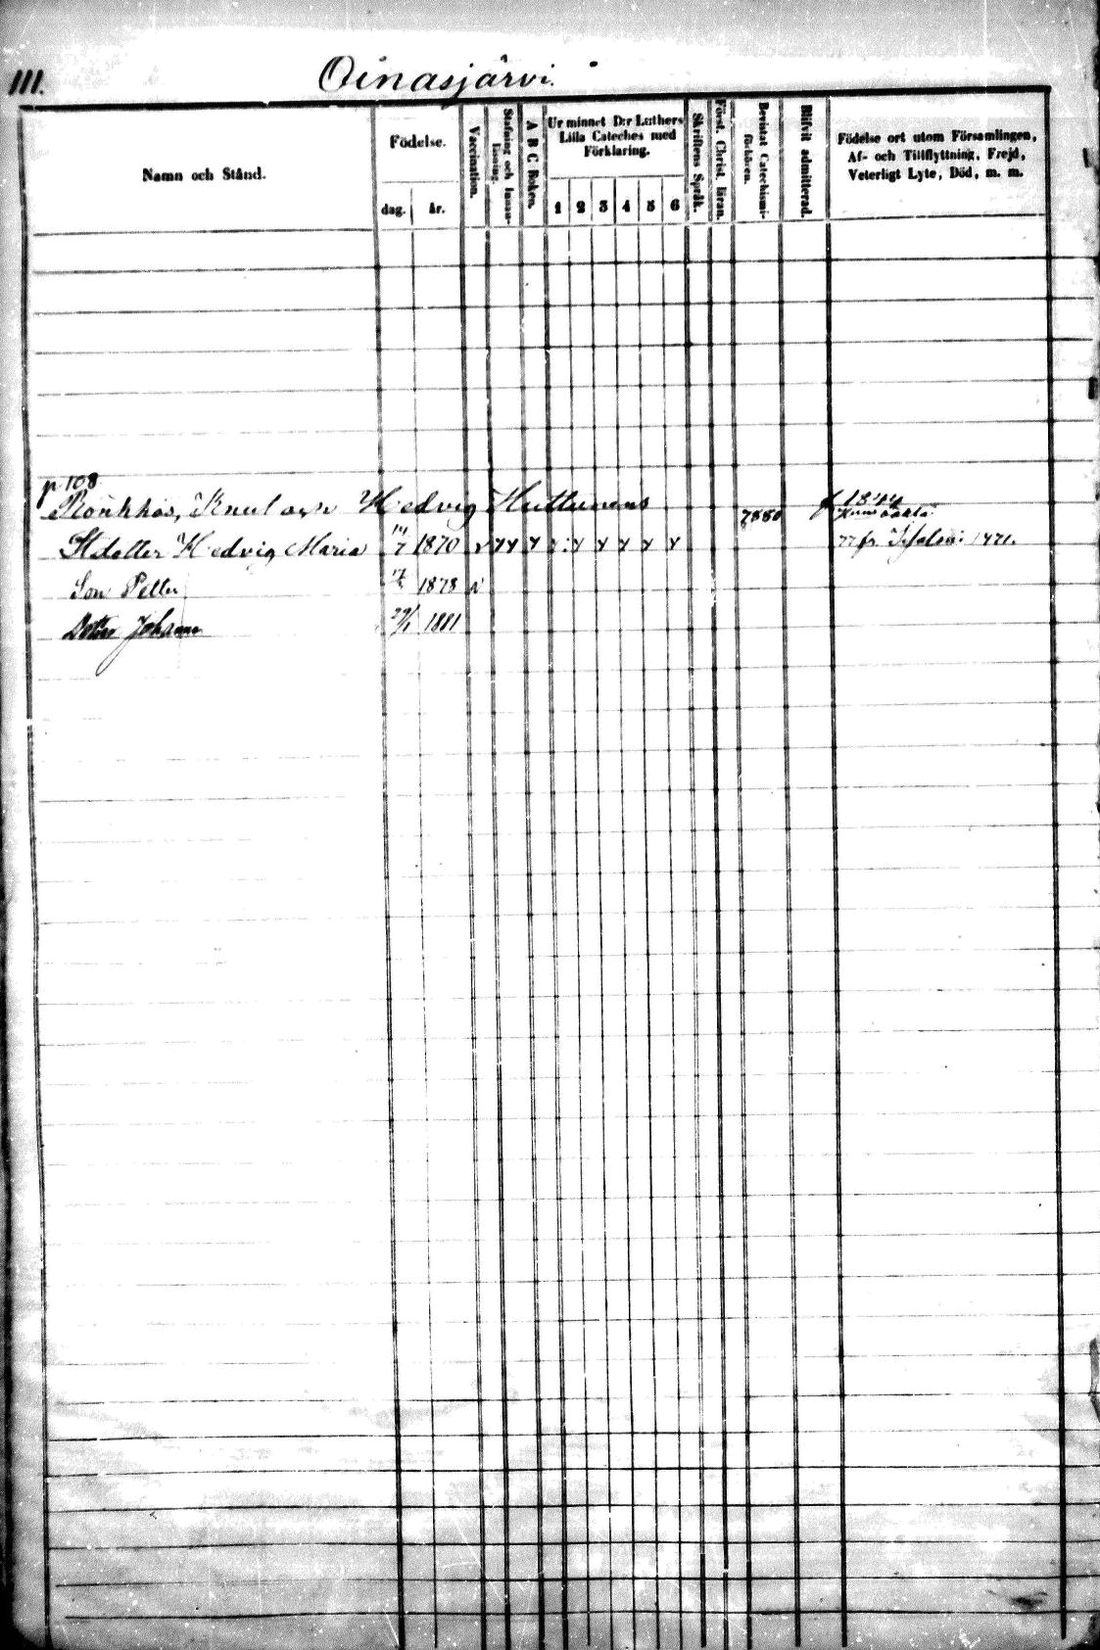 111.
Oinasjärvi.
Namn och Stånd.
Födelse.
dag. år.
Vaccination.
Stafning och Innan-läsning.
A B C Boken.
Ur minnet D:r Luthers
Lilla Cateches med
Förklaring.
1 2 3 4 5 6
Skriftens Språk.
Först. Christ. läran.
Bevistat Catechismi-förhören.
Blifvit admitterad.
Födelse ort utom Församlingen,
Af- och Tillflyttning, Frejd,
Veterligt Lyte, Död, m. m.
p 108
Knut och Hedvig Huttunens 7880 f 1844
Hedvig Maria 1870 v
Son Petter 1878 v
Johanna 29/1 1881